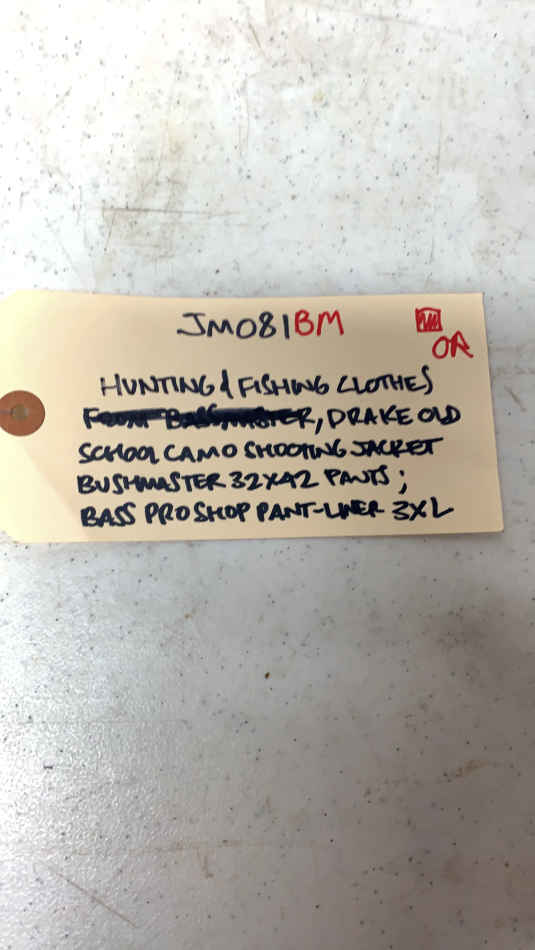 JM081BM
OR
HUNTING & FISHING CLOTHES
, DRAKE OLD
SCHOOL CAMO SHOOTING JACKET
BUSHMASTER 32X42 PANTS;
BASS PRO SHOP PANT-LINER 3XL